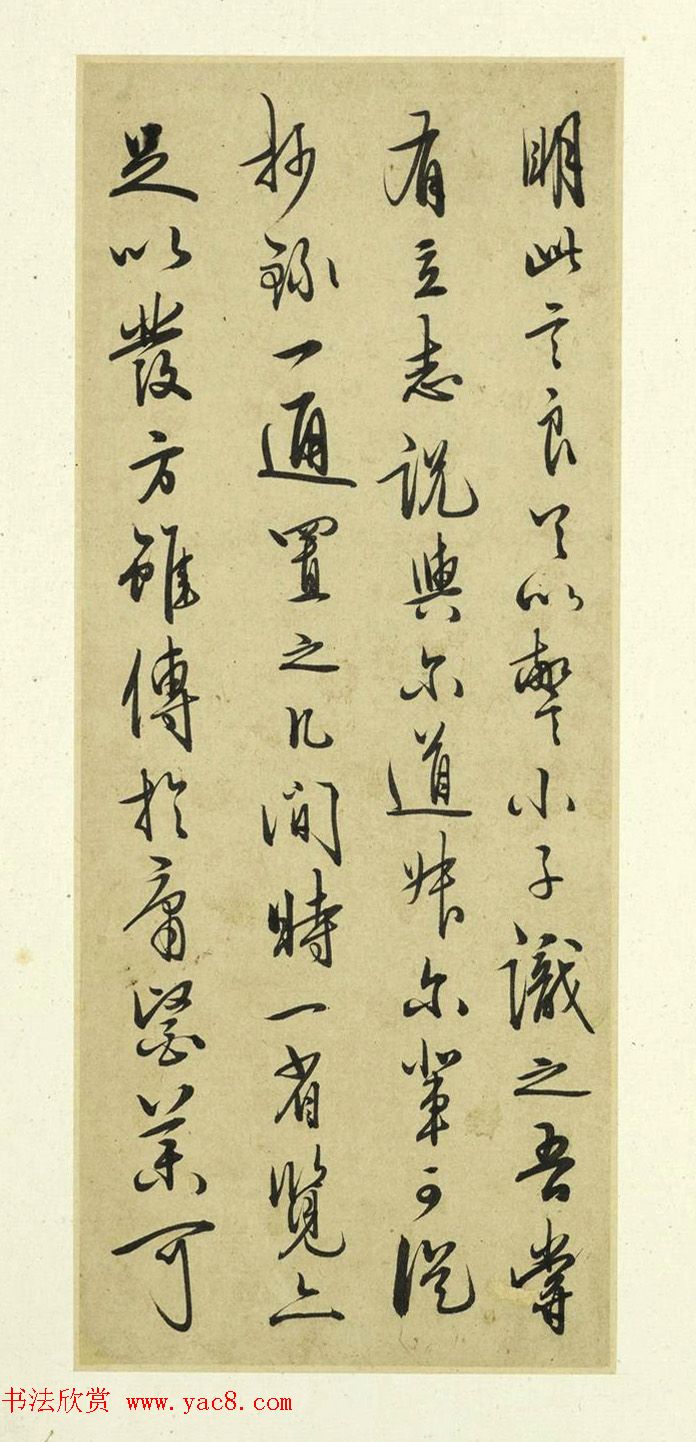 明此言良足以警小子識之吾嘗
有立志說與尔道叔尔輩可從
抄錄一通置之几間時一省覽亦
足以發方雖傳於庸醫藥可
书法欣赏 www.yac8.com